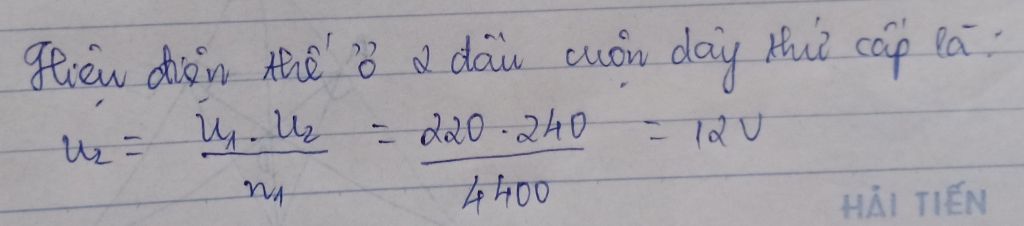 Hiệu điện thế ở 2 đầu cuộn dây thứ cấp là:
U₂ = U₁ . U₂ / n₁ = 220 . 240 / 4400 = 12V
HẢI TIẾN